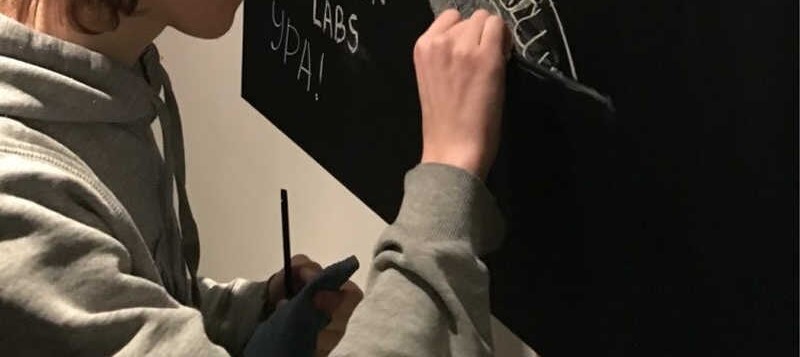 LABS
УРА!